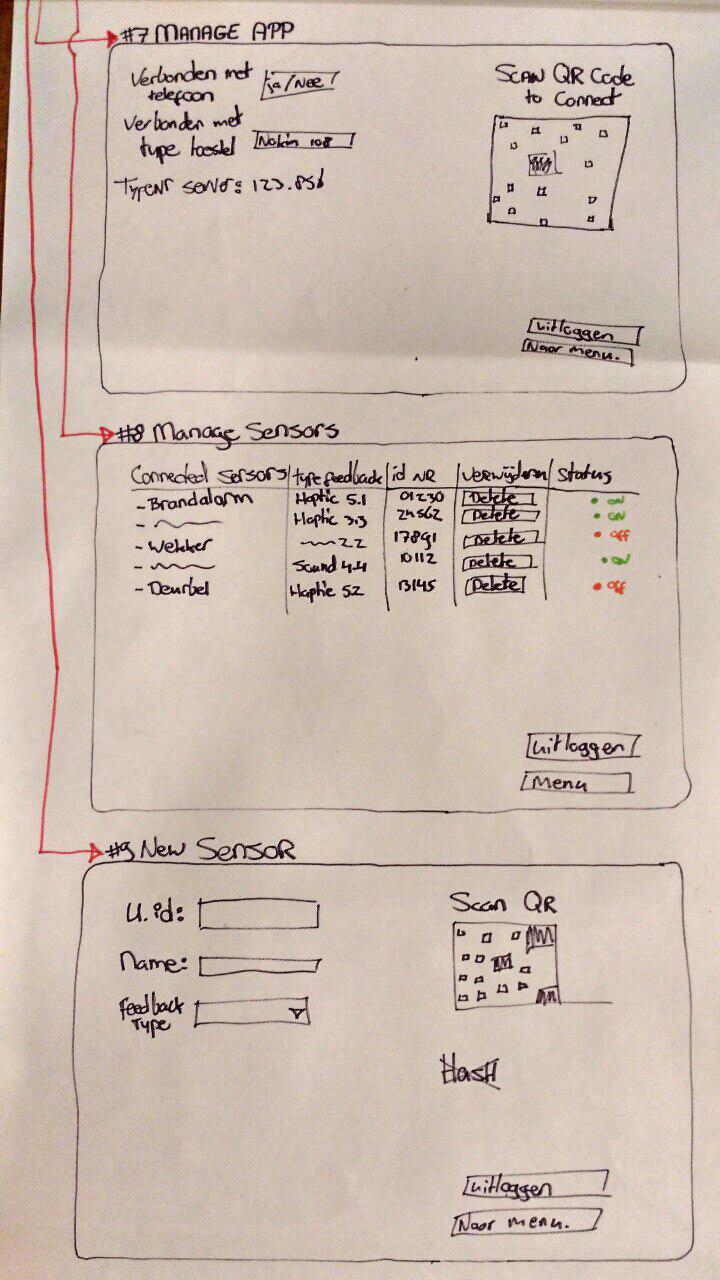 #7 MANAGE APP
Verbonden met
telefoon
ja/Nee
Verbonden met
type toestel
Nokia 108
TypeNr server: 123.856
SCAN QR Code
to Connect
uitloggen
Naar menu.
#8 Manage Sensors
Connected Sensors type feedback id NR verwijderen Status
- Brandalarm Haptic 5.1 01230 Delete ON
- Haptic 3.3 24562 Delete ON
- Wekker 2.2 17891 Delete OFF
- Sound 4.4 10112 Delete ON
- Deurbel Haptic 5.2 13145 Delete OFF
uitloggen
Menu
#9 New Sensor
U.id:
Name:
Feedback
Type
Scan QR
Hash
uitloggen
Naar menu.